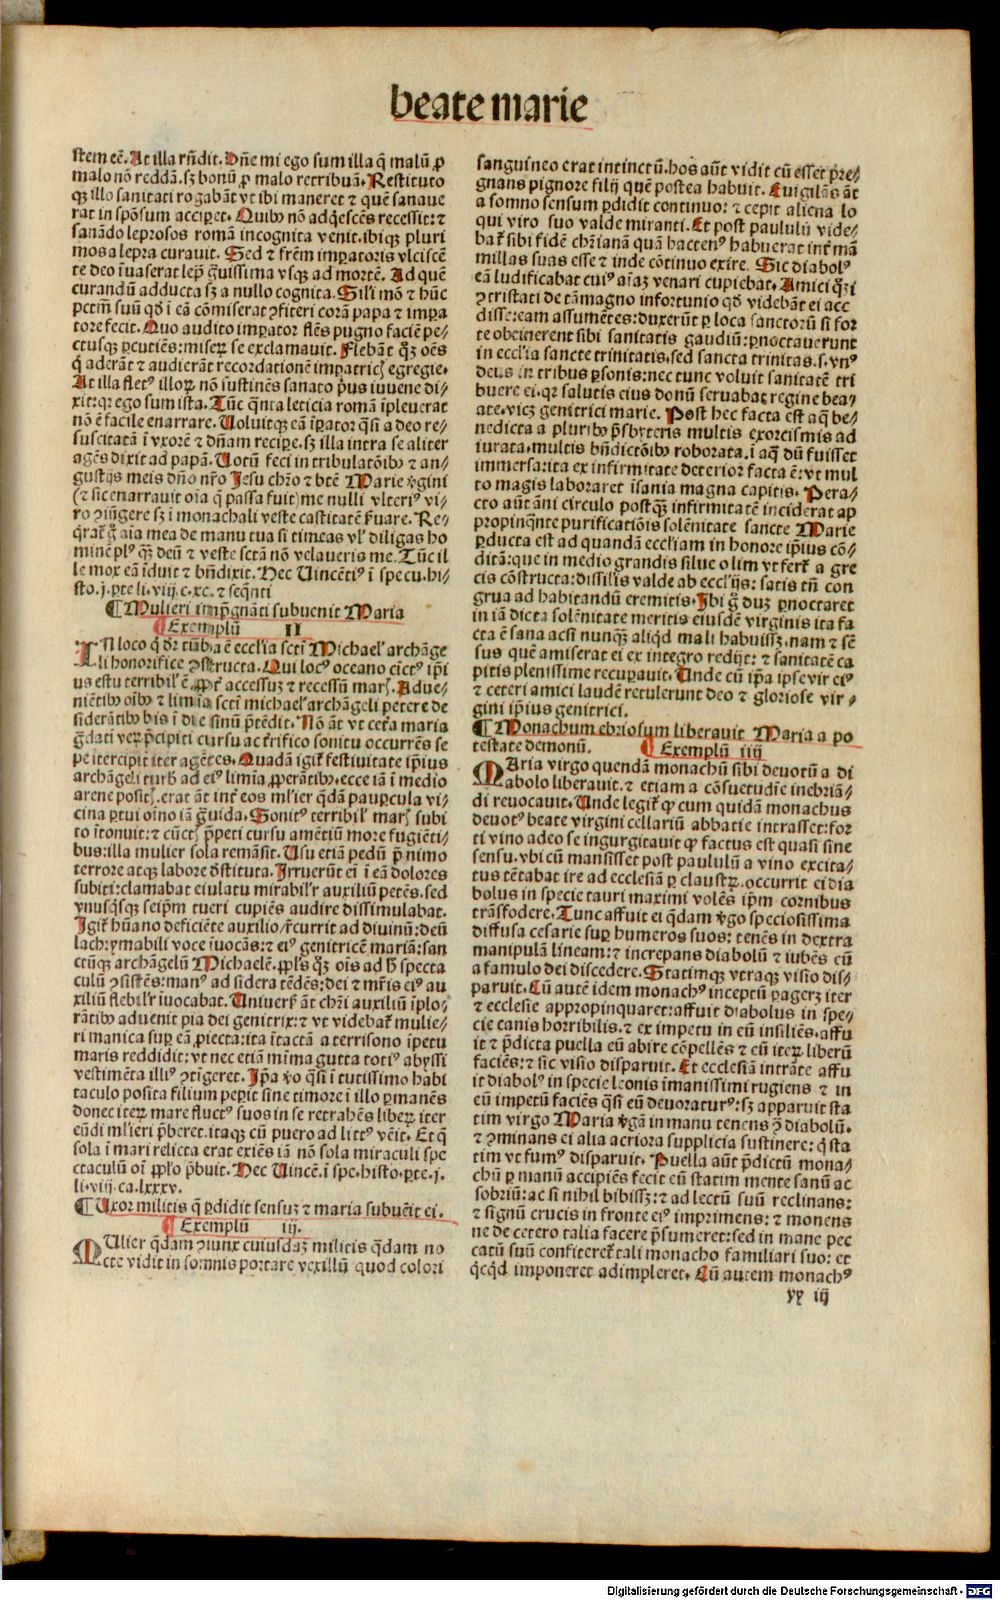 beate marie
stem eē. At illa rn̄dit. Dn̄e mi ego sum illa q̄ malū ꝓ
malo nō reddā. sꝫ bonū ꝓ malo retribuā. Restituto
qꝫ illo sanitati rogabāt vt ibi maneret ⁊ quē sanaue
rat in spōsum acciꝑet. Quibꝰ nō adq̄escēs recessit: ⁊
sanādo leprosos romā incognita venit. ibiqꝫ pluri
mos a lepra curauit. Sed ⁊ frēm imꝑatoris vlciscē
te deo īuaserat lep̄ g̃uissima vsqꝫ ad mortē. Ad quē
curandū adducta sꝫ a nullo cognita. Sil'i mō ⁊ hūc
pctm̄ suū qd̄ ī eā cōmiserat ꝯfiteri corā papa ⁊ imꝑa
tore fecit. Quo audito imꝑator flēs pugno faciē pe/
ctusqꝫ ꝑcutiēs: miseꝝ se exclamauit. Flebāt q̄ꝫ oēs
q̄ aderāt ⁊ audierāt recordationē imꝑatricꝭ egregie.
At illa fletꝰ illoꝝ nō sustinēs sanato pͥus iuuene di/
xit: qꝛ ego sum ista. Tūc q̄nta leticia romā īpleuerat
nō ē facile enarrare. Uoluitqꝫ eā īꝑator q̄si a deo re/
suscitatā ī vxorē ⁊ dn̄am reciꝑe. sꝫ illa intra se aliter
agēs dixit ad papā. Uotū feci in tribulatōibꝰ ⁊ an/
gustijs meis dn̄o nr̄o Jesu chr̄o ⁊ btē Marie v̄gini
(⁊ sic enarrauit oīa q̄ passa fuit) me nulli vlteriꝰ vi/
ro ꝯiūgere sꝫ ī monachali veste castitatē ẜuare. Re/
q̄rat᷑ g̊ aīa mea de manu tua si timeas vl' diligas ho
minē plꝰ q̄ꝫ deū ⁊ veste sctā nō velaueris me. Tūc il
le mox eā īduit ⁊ bn̄dixit. Hec Uincētiꝰ ī specu. hi/
sto. j. ꝑte li. viij. c. xc. ⁊ seq̄nti
¶ Mulieri imp̄gnāti subuenit Maria
¶ Exemplū II
IN loco q̄ dr̄ tūba ē eccl'ia scti Michael' archāge
li honorifice ꝯstructa. Qui locꝰ oceano cīctꝰ ip̄i
us estu terribil' ē. ꝓpt̄ accessuꝫ ⁊ recessū marꝭ. Adue/
niētibꝰ oībꝰ ⁊ limīa scti michael' archāgeli petere de
siderātibꝰ bis ī die sinū p̄tēdit. Nō āt vt cet̄a maria
g̃dati veꝝ p̄cipiti cursu ac t̄rifico sonitu occurrēs se
pe itercipit iter agētes. Quadā igit᷑ festiuitate ip̄ius
archāgeli turbꝭ ad eiꝰ limīa ꝓꝑerātibꝰ. ecce iā ī medio
arene positꝭ. erat āt int̄ eos ml'ier q̄dā pauꝑcula vi/
cina ꝑtui oīno iā g̃uida. Sonitꝰ terribil' marꝭ subi
to ītonuit: ⁊ cūctꝭ p̄peti cursu amētiū more fugiēti/
bus: illa mulier sola remāsit. Usu etiā pedū p̄ nimo
terrore atqꝫ labore dꝰstituta. Irruerūt ei ī eā dolores
subiti: clamabat eiulatu mirabil'r auxiliū petēs. sed
vnusq̄sqꝫ seip̄m tueri cupiēs audire dissimulabat.
Igit᷑ hūano deficiēte auxilio / r̄currit ad diuinū: deū
lachrymabili voce īuocās: ⁊ eiꝰ genitricē mariā: san
ctūqꝫ archāgelū Michaelē. ꝓpl's q̄ꝫ oīs ad h̄ specta
culū ꝯsistēs: manꝰ ad sidera tēdēs: dei ⁊ mr̄is eiꝰ au
xiliū flebil'r īuocabat. Uniuersꝭ āt chr̄i auxiliū īplo/
rātibꝰ aduenit pia dei genitrix: ⁊ vt videbat᷑ mulie/
ri manica suꝑ eā ꝓiecta: ita ītactā a terrisono īpetu
maris reddidit: vt nec etiā mīma gutta totiꝰ abyssi
vestimēta illiꝰ ꝯtīgeret. Ip̄a v̄o q̄si ī tutissimo habi
taculo posita filium peꝑit sine timore ī illo ꝑmanēs
donec iteꝝ mare fluctꝰ suos in se retrahēs libeꝝ iter
eūdi ml'ieri p̄beret. itaqꝫ cū puero ad littꝰ vēit. Et q̄
sola ī mari relicta erat exiēs iā nō sola miraculi spe
ctaculū oī ꝓpl'o p̄buit. Hec Uincē. ī spe. histo. ꝑte. j.
li. viij. ca. lxxxv.
¶ Uxor militis q̄ ꝑdidit sensuꝫ ⁊ maria subuēit ei.
¶ Exemplū iij.
MUlier q̄dam ꝯiunx cuiusdaꝫ militis q̄dam no
cte vidit in somnis portare vexillū quod colori
sanguineo erat intinctū. hos aūt vidit cū esset p̄re/
gnans pignore filij quē postea habuit. Euigilās āt
a somno sensum ꝑdidit continuo: ⁊ cepit aliena lo
qui viro suo valde miranti. Et post paululū vide/
bat᷑ sibi fidē chr̄ianā quā hactenꝰ habuerat int̄ mā
millas suas esse ⁊ inde cōtinuo exire. Sic diabolꝰ
eā ludificabat cuiꝰ aīaꝫ venari cupiebat. Amici q̄ꝫi
ꝯtristati de tā magno infortunio qd̄ videbāt ei acc
disse: eam assumētes: duxerūt ꝑ loca sanctorū si for
te obtinerent sibi sanitatis gaudiū: ꝑnoctauerunt
in eccl'ia sancte trinitatis. sed sancta trinitas. s. vnꝰ
deus in tribus ꝑsonis: nec tunc voluit sanitatē tri
buere ei. qꝛ salutis eius donū seruabat regine bea/
ate. vicꝫ genitrici marie. Post hec facta est aq̄ be/
nedicta a pluribꝰ p̄sbyteris multis exorcismis ad
iurata. multis bn̄dictōibꝰ roborata. ī aq̄ dū fuisset
immersa: ita ex infirmitate deterior facta ē: vt mul
to magis laboraret īsania magna capitis. Pera/
cto aūt āni circulo postq̄ꝫ infirmitatē inciderat ap
propinq̄nte purificatiōis solēnitate sancte Marie
ꝑducta est ad quandā eccl'iam in honore ip̄ius cō/
ditā: que in medio grandis silue olim vt fert᷑ a gre
cis cōstructa: dissilis valde ab eccl'ijs: satis tn̄ con
grua ad habitandū eremitis. Ibi g̊ duꝫ ꝑnoctaret
in iā dicta solēnitate meritis eiusdē virginis ita fa
cta ē sana acsi nunq̄ꝫ aliqd̄ mali habuissꝫ. nam ⁊ sē
sus quē amiserat ei ex integro redijt: ⁊ sanitatē ca
pitis plenissime recuꝑauit. Unde cū ip̄a ipse vir eiꝰ
⁊ ceteri amici laudē retulerunt deo ⁊ gloriose vir/
gini ip̄ius genitrici.
¶ Monachum ebriosum liberauit Maria a po
testate demonū. ¶ Exemplū iiij
MAria virgo quendā monachū sibi deuotū a di
abolo liberauit. ⁊ etiam a cōsuetudīe inebriā/
di reuocauit. Unde legit᷑ ꝙ cum quidā monachus
deuotꝰ beate virgini cellariū abbatie intrasset: for
ti vino adeo se ingurgitauit ꝙ factus est quasi sine
sensu. vbi cū mansisset post paululū a vino excita/
tus tētabat ire ad ecclesiā ꝑ claustꝝ. occurrit ei dia
bolus in specie tauri maximi volēs ip̄m cornibus
trāsfodere. Tunc affuit ei q̄dam v̄go speciosissima
diffusa cesarie suꝑ humeros suos: tenēs in dextra
manipulā lineam: ⁊ increpans diabolū ⁊ iubēs eū
a famulo dei discedere. Statimqꝫ vtraqꝫ visio dis/
paruit. Cū autē idem monachꝰ inceptū ꝑageꝫ iter
⁊ ecclesie appropinquaret: affuit diabolus in spe/
cie canis horribilis. ⁊ ex impetu in eū insiliēs. affu
it ⁊ p̄dicta puella eū abire cōpellēs ⁊ eū iteꝝ liberū
faciēs: ⁊ sic visio disparuit. Et ecclesiā intrāte affu
it diabolꝰ in specie leonis imanissimi rugiens ⁊ in
eū impetū faciēs q̄si eū deuoraturꝰ: sꝫ apparuit sta
tim virgo Maria v̄gā in manu tenens ꝯ̄ diabolū.
⁊ ꝯminans ei alia acriora supplicia sustinere: q̄ sta
tim vt fumꝰ disparuit. Puella aūt p̄dictū mona/
chū ꝑ manū accipiēs fecit eū statim mente sanū ac
sobriū: ac si nihil bibissꝫ: ⁊ ad lectū suū reclinans:
⁊ signū crucis in fronte eiꝰ imprimens: ⁊ monens
ne de cetero talia facere p̄sumeret: sed in mane pec
catū suū confiteret᷑ tali monacho familiari suo: et
q̄cqd̄ imponeret adimpleret. Cū autem monachꝰ
yy iij
Digitalisierung gefördert durch die Deutsche Forschungsgemeinschaft - DFG